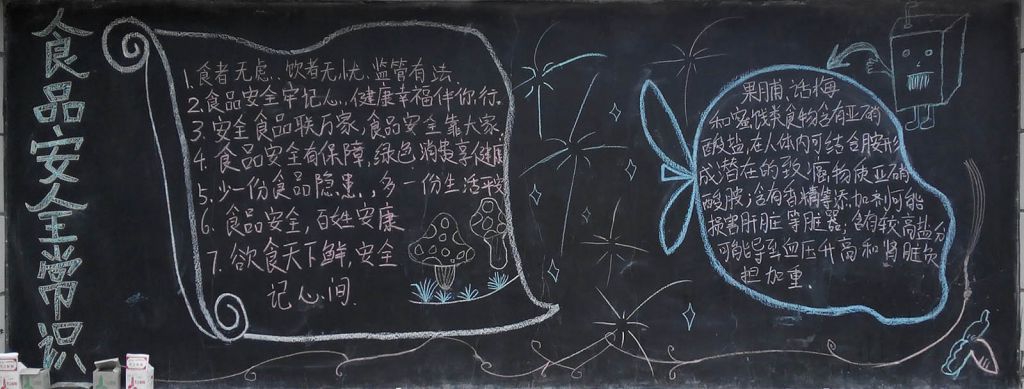 食品安全常识
1.食者无虑..饮者无忧.监管有法
2.食品安全牢记心,健康幸福伴你行.
3.安全食品联万家,食品安全靠大家.
4.食品安全有保障,绿色消费享健康
5.少一份食品隐患.,多一份生活平安
6.食品安全,百姓安康
7.欲食天下鲜,安全
记心间.
果脯话梅
和蜜饯类食物含有亚硝
酸盐,在人体内可结合胺形
成潜在的致癌物质亚硝
酸胺;含有香精等添加剂可能
损害肝脏等脏器;含有较高盐分
可能导至血压升高和肾脏负
担加重.